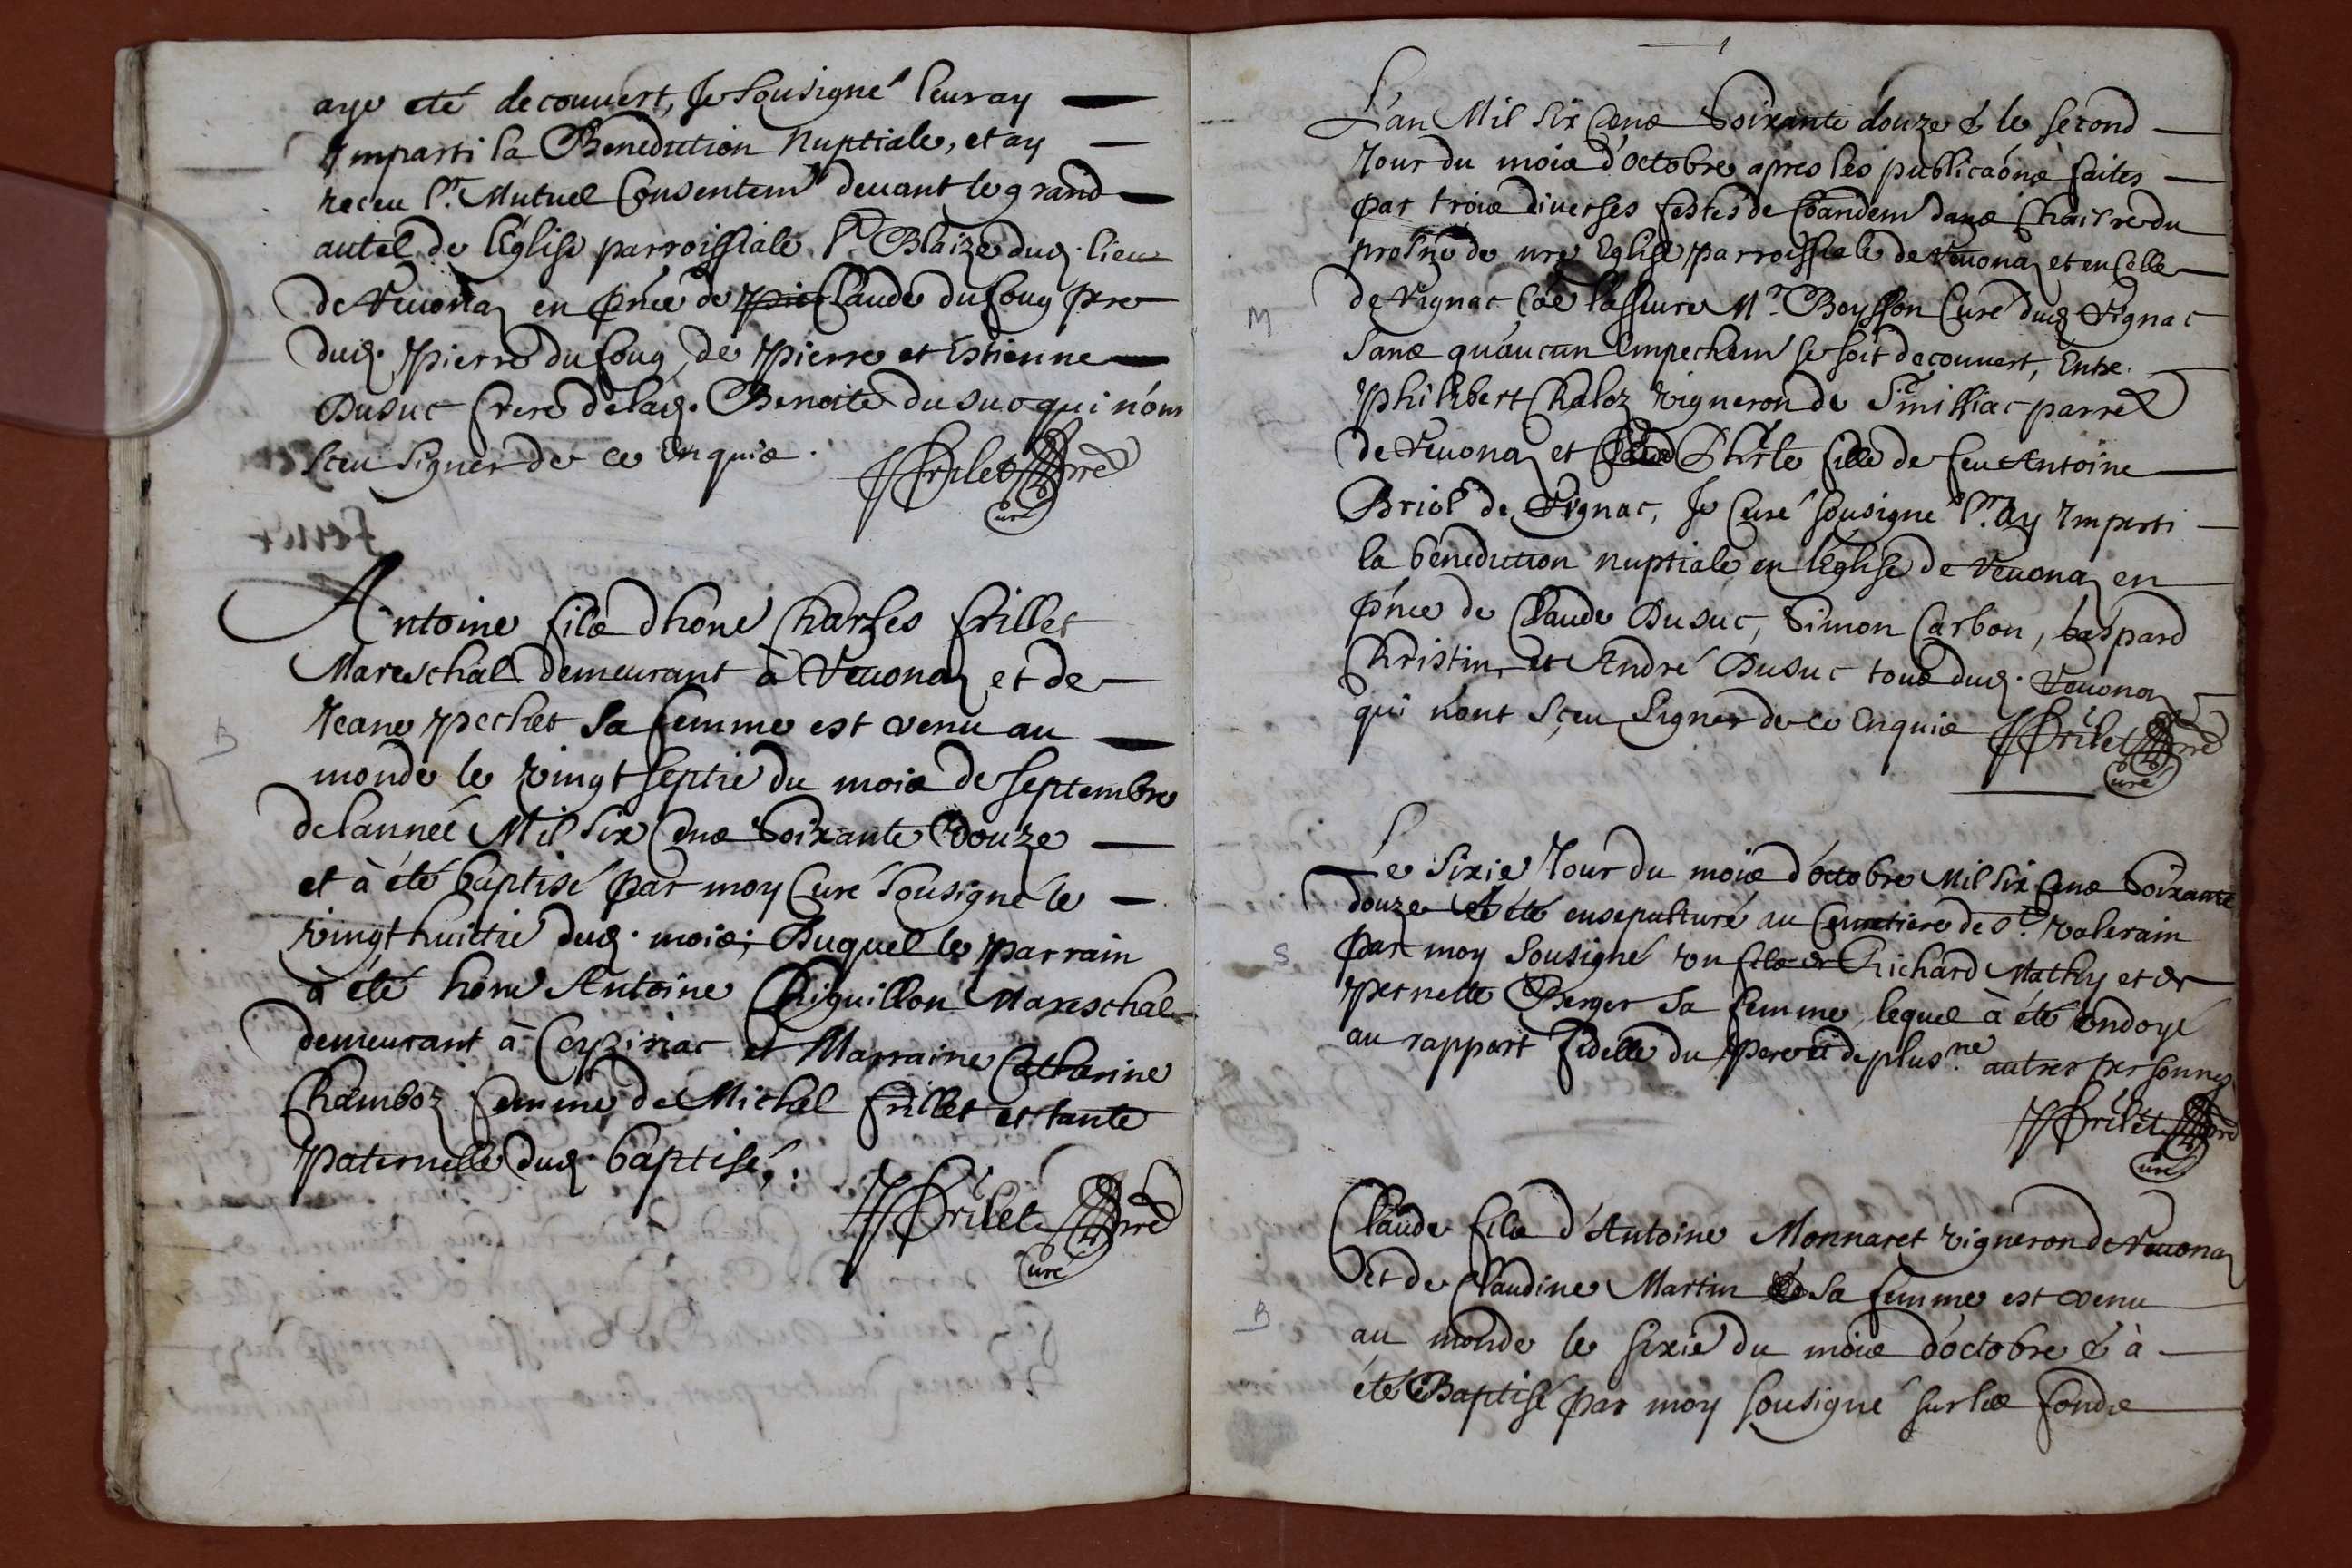 aye eté decouuert, Je sousigné leur ay
Imparti la Benediction Nuptiale, et ay
receu lr. Mutuel Consentem devant le grand
autel de l'Eglise parroissiale St. Blaize dud. lieu
de Veuona en pnce de Claude du foug pre
dud. Pierre du foug, de Pierre et Estienne
Dusuc frere de lad. Benoite du suc qui n'ont
sceu signer de ce Enquis.
Frilet pre
Curé
Antoine fils d'hone Charles frillet
Mareschal demeurant à Veuona et de
Jeane pechet sa femme est venu au
B
monde le vingt septie du mois de septembre
de l'anneé Mil six Cens Soixante Douze
et à été baptisé par moy Curé sousigné le
vingt huittie dud. mois; Duquel le parrain
à été hone Antoine Mareschal
demeurant à Ceyziriac et Marraine Catherine
Chamboz femme de Michel frillet et tante
paternelle dud. baptisé.
Frilet pre
Curé
1
L'an Mil six Cens Soixante douze & le second
Jour du mois d'octobre apres les publicaôns faites
par trois diverses festes de Coandem dans Chaitre du
prosne de nre Eglise parroissiale de Veuona et en Celle
M
de Vignac Coe l'assure Mr. Boysson Curé dud Vignac
Sans qu'aucun Empechem se soit decouvert, Entre
Philibert Chaloz vigneron de Similliac parre
de Veuona et fille de feu Antoine
Briol de Vignac, Je Curé sousigné lr. ay Imparti
la bénediction nuptiale en l'Eglise de Veuona en
pnce de Claude Dusuc, Simon Carbon, Gaspard
Christin, et André Dusuc tous dud. Veuona
qui n'ont sçeu signer de ce Enquis Frilet pre
Curé
Le sixie Jour du mois d'octobre Mil six Cens Soixante
douze à été ensepulturé au Cemetiere de St. Valerain
S
par moy sousigné un fils de Richard Mathy et de
pernette Berger sa femme, lequel à été ondoyé
au rapport fidelle du pere et de plusrs autres personnes
Frilet pre
Curé
Claude fils d'Antoine Monnaret vigneron de Veuona
et de Claudine Martin sa femme est venu
B
au monde le sixie du mois d'octobre & à
été Baptisé par moy sousigné sur les fonds